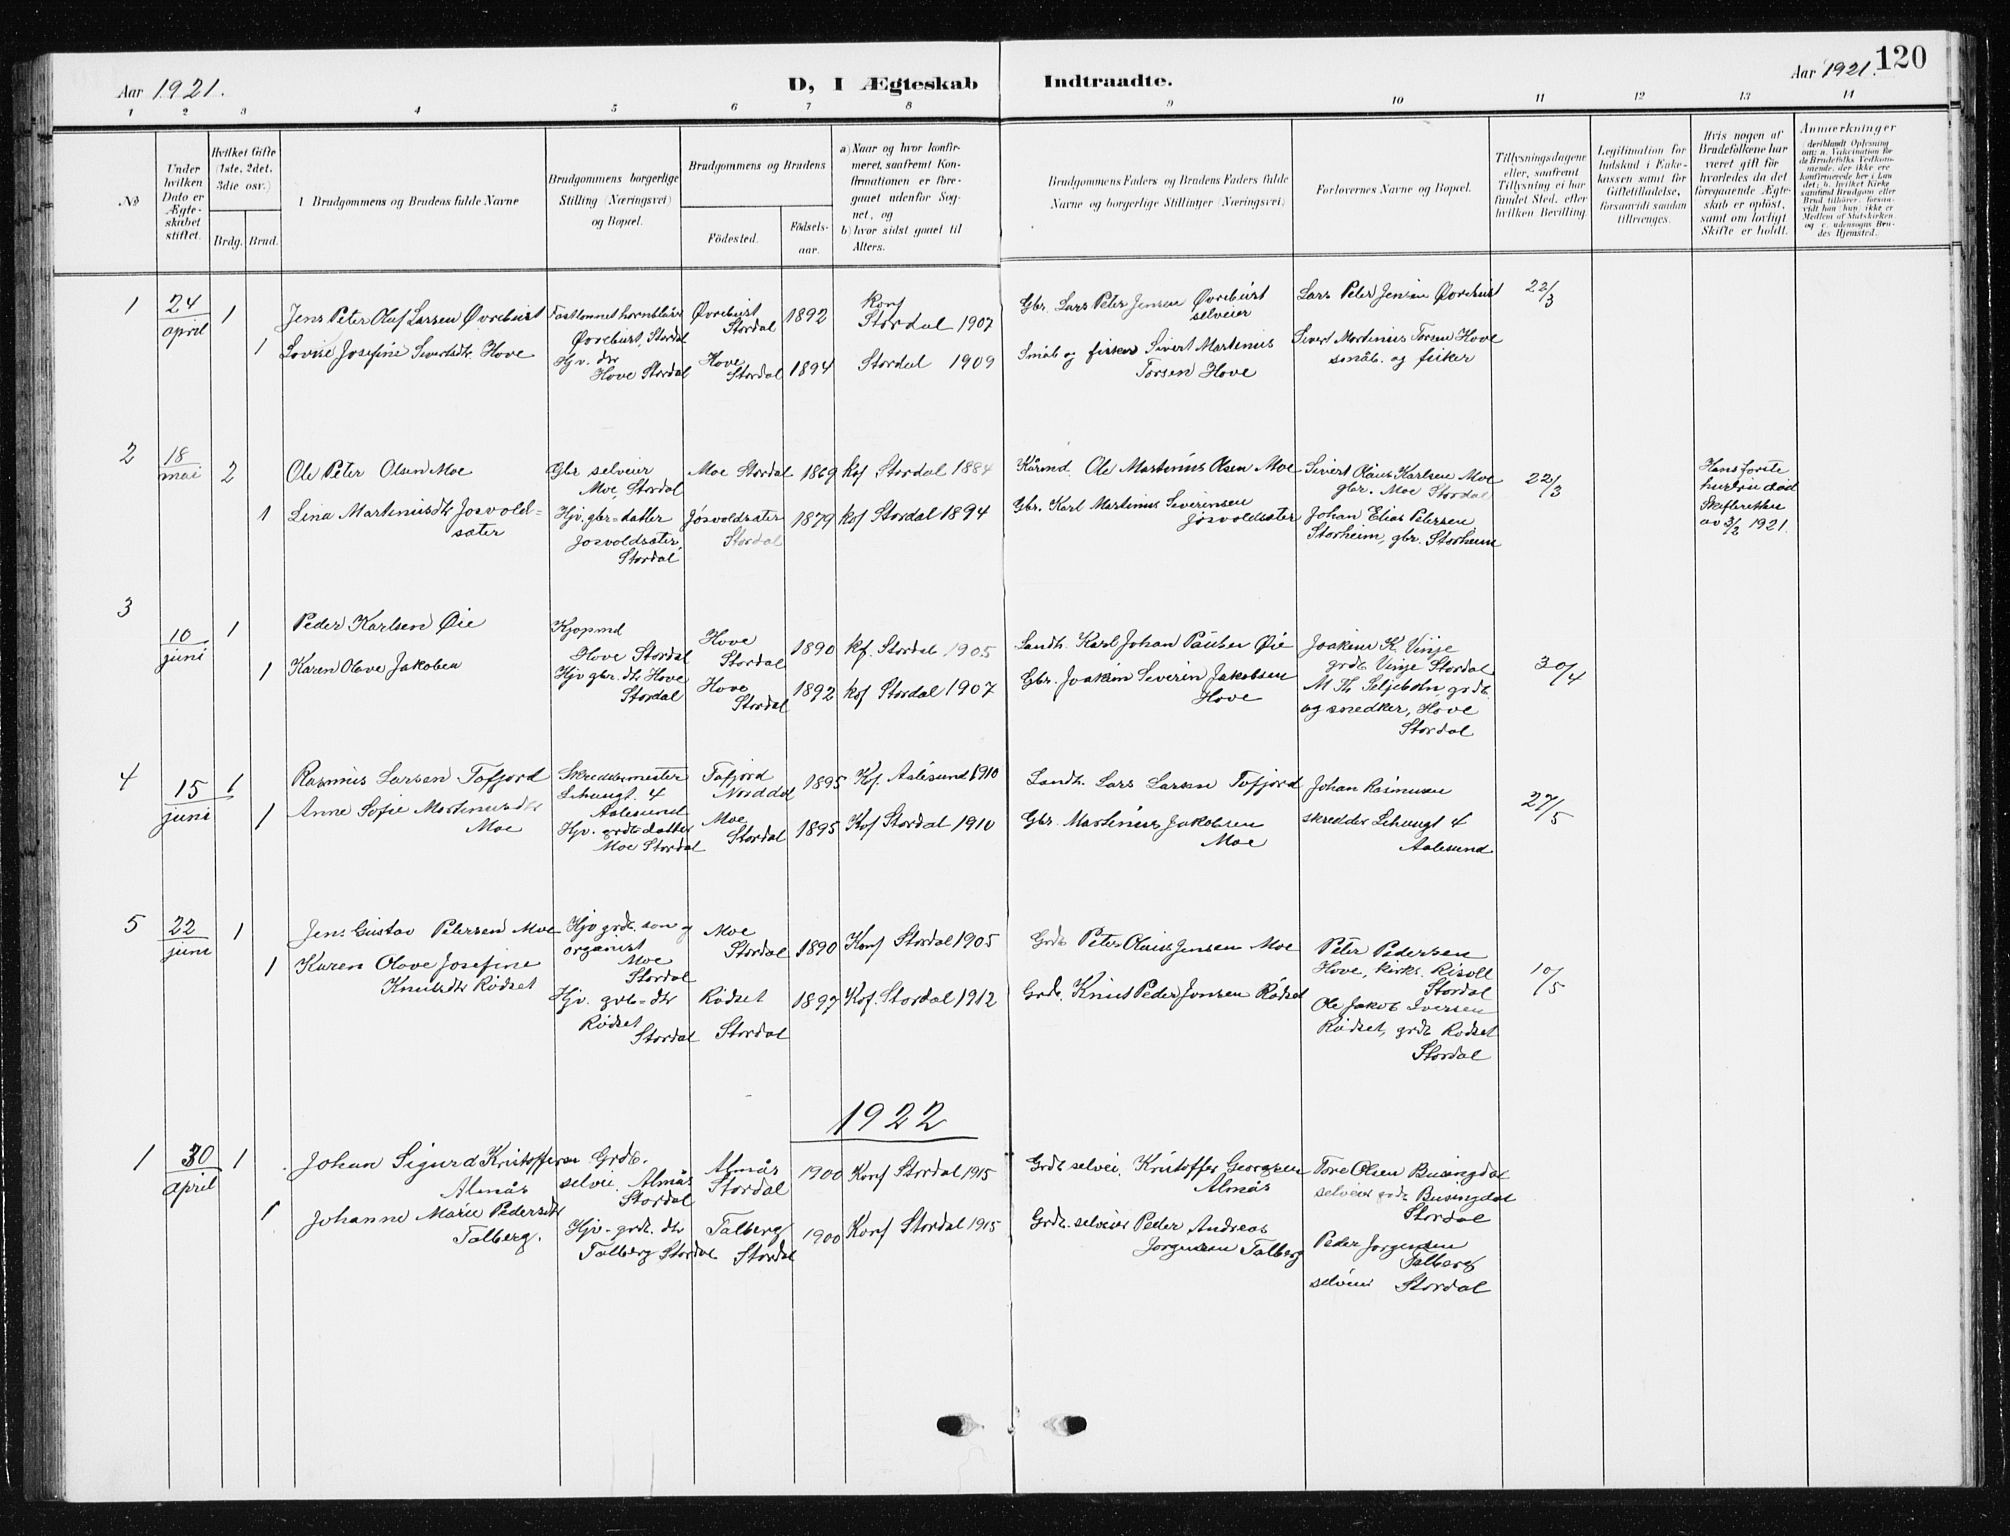 Aar 1921.
D, I Ægteskab Indtraadte.
Aar 1921. 120
1 2 3 4 5 6 7 8 9 10 11 12 13 14
No
Under hvilken Dato er Ægteskabet stiftet.
Hvilket Gifte (1ste, 2det, 3die osv.)
Brdg. Brud.
Brudgommens og Brudens fulde Navne
Brudgommens borgerlige Stilling (Næringsvei) og Bopæl.
Brudgommens og Brudens
Fødested. Fødselsaar.
a) Naar og hvor konfirmeret, saafremt Konfirmationen er foregaaet udenfor Sognet, og
b) hvor sidst gaaet til Alters.
Brudgommens Faders og Brudens Faders fulde Navne og borgerlige Stillinger (Næringsvei)
Forlovernes Navne og Bopæl.
Tillysningsdagene eller, saafremt Tillysning ei har fundet Sted, efter hvilken Bevilling.
Legitimation for Indskud i Enkekassen samt for Giftetilladelse, forsaavidt saadan tiltrænges.
Hvis nogen af Brudefolkene har været gift før hvorledes da det foregaaende Ægteskab er opløst, samt om lovligt Skifte er holdt.
Anmærkninger
(deriblandt Oplysning om: a. Vakcination for de Brudefolks Vedkommende, der ikke ere konfirmerede her i Landet; b. hvilket Kirkesamfund Brudgom eller Brud tilhører, forsaavidt han (hun) ikke er Medlem af Statskirken og c. udensogns Brudes Hjemsted.
1 24/april 1
Jens Peter Oluf Larsen Øvrebust
Fastlønnet hornblåser Øvrebust, Stordal
Øvrebust Stordal 1892
Konf Stordal 1907
Gbr. Lars Peter Jensen Øvrebust selveier
Lars Peter Jensen Øvrebust
22/3
1 Lovise Josefine Sivertsdtr. Hove
Hjv. dtr Hove Stordal
Hove Stordal 1894
Stordal 1909
Småb og fisker Sivert Martinus Torsen Hove
Sivert Martinus Torsen Hove småb. og fisker
2 18/mai 2
Ole Peter Olsen Moe
Gbr selveier Moe, Stordal
Moe Stordal 1869
kof Stordal 1884
Kårmd Ole Martinus Olsen Moe
Sivert Olaus Karlsen Moe gbr. Moe Stordal
22/3
Hans første hustru død Skifteretten av 3/2 1921.
1 Lina Martinusdtr Josvoldsæter
Hjv. gbr=datter Josvoldsæter, Stordal
Jøsvoldsæter Stordal 1879
kof Stordal 1894
Gbr. Karl Martinus Severinsen Jøsvoldsæter
Johan Elias Petersen Storheim, gbr. Storheim
3 10/juni 1
Peder Karlsen Øie
Kjøpmd Hove Stordal
Hove Stordal 1890
kf. Stordal 1905
Landh. Karl Johan Paulsen Øie
Joakim K. Vinje grdb Vinje Stordal
30/4
1 Karen Olave Jakobsen
Hjv gbr. dtr Hove Stordal
Hove Stordal 1892
kof Stordal 1907
Gbr. Joakim Severin Jakobsen Hove
M Th Seljebotn, grdb. og snedker, Hove Stordal
4 15/juni 1
Rasmus Larsen Tafjord
Skreddermester 4 Aalesund
Tafjord Norddal 1895
Kof. Aalesund 1910
Landh. Lars Larsen Tafjord
Johan Rasmussen skredder 4 Aalesund
27/5
1 Anne Sofie Martinusdtr Moe
Hjv. grdb datter Moe Stordal
Moe Stordal 1895
Kof Stordal 1910
Gbr. Martinus Jakobsen Moe
5 22/juni 1
Jens Gustav Petersen Moe
Hjv grdb. søn og organist Moe Stordal
Moe Stordal 1890
Konf Stordal 1905
Grdb Peter Olaus Jensen Moe
Peter Pedersen Hove, kirks. Stordal
10/5
1 Karen Olave Josefine Knutsdtr Rødset
Hjv. grb=dtr Rødset Stordal
Rødset Stordal 1897
Kof. Stordal 1912
Grdb. Knut Peder Jonsen Rødset
Ole Jakob Iversen Rødset, grdb Rødset Stordal
1922
1 30/april 1
Johan Sigurd Kristoffersen Almås
Grdb. selvei. Almås Stordal
Almås Stordal 1900
Konf Stordal 1915
Grdb selvei. Kristoffer Georgsen Almås
Tore Olsen Busingdal selveier grdb Busingdal Stordal
1 Johanne Marie Pedersdtr Talberg.
Hjv. grdb. dtr Talberg Stordal
Talberg Stordal 1900
Konf Stordal 1915
Grdb. selveier Peder Andreas Jørgensen Talberg
Peder Jørgensen Talberg selveier Stordal